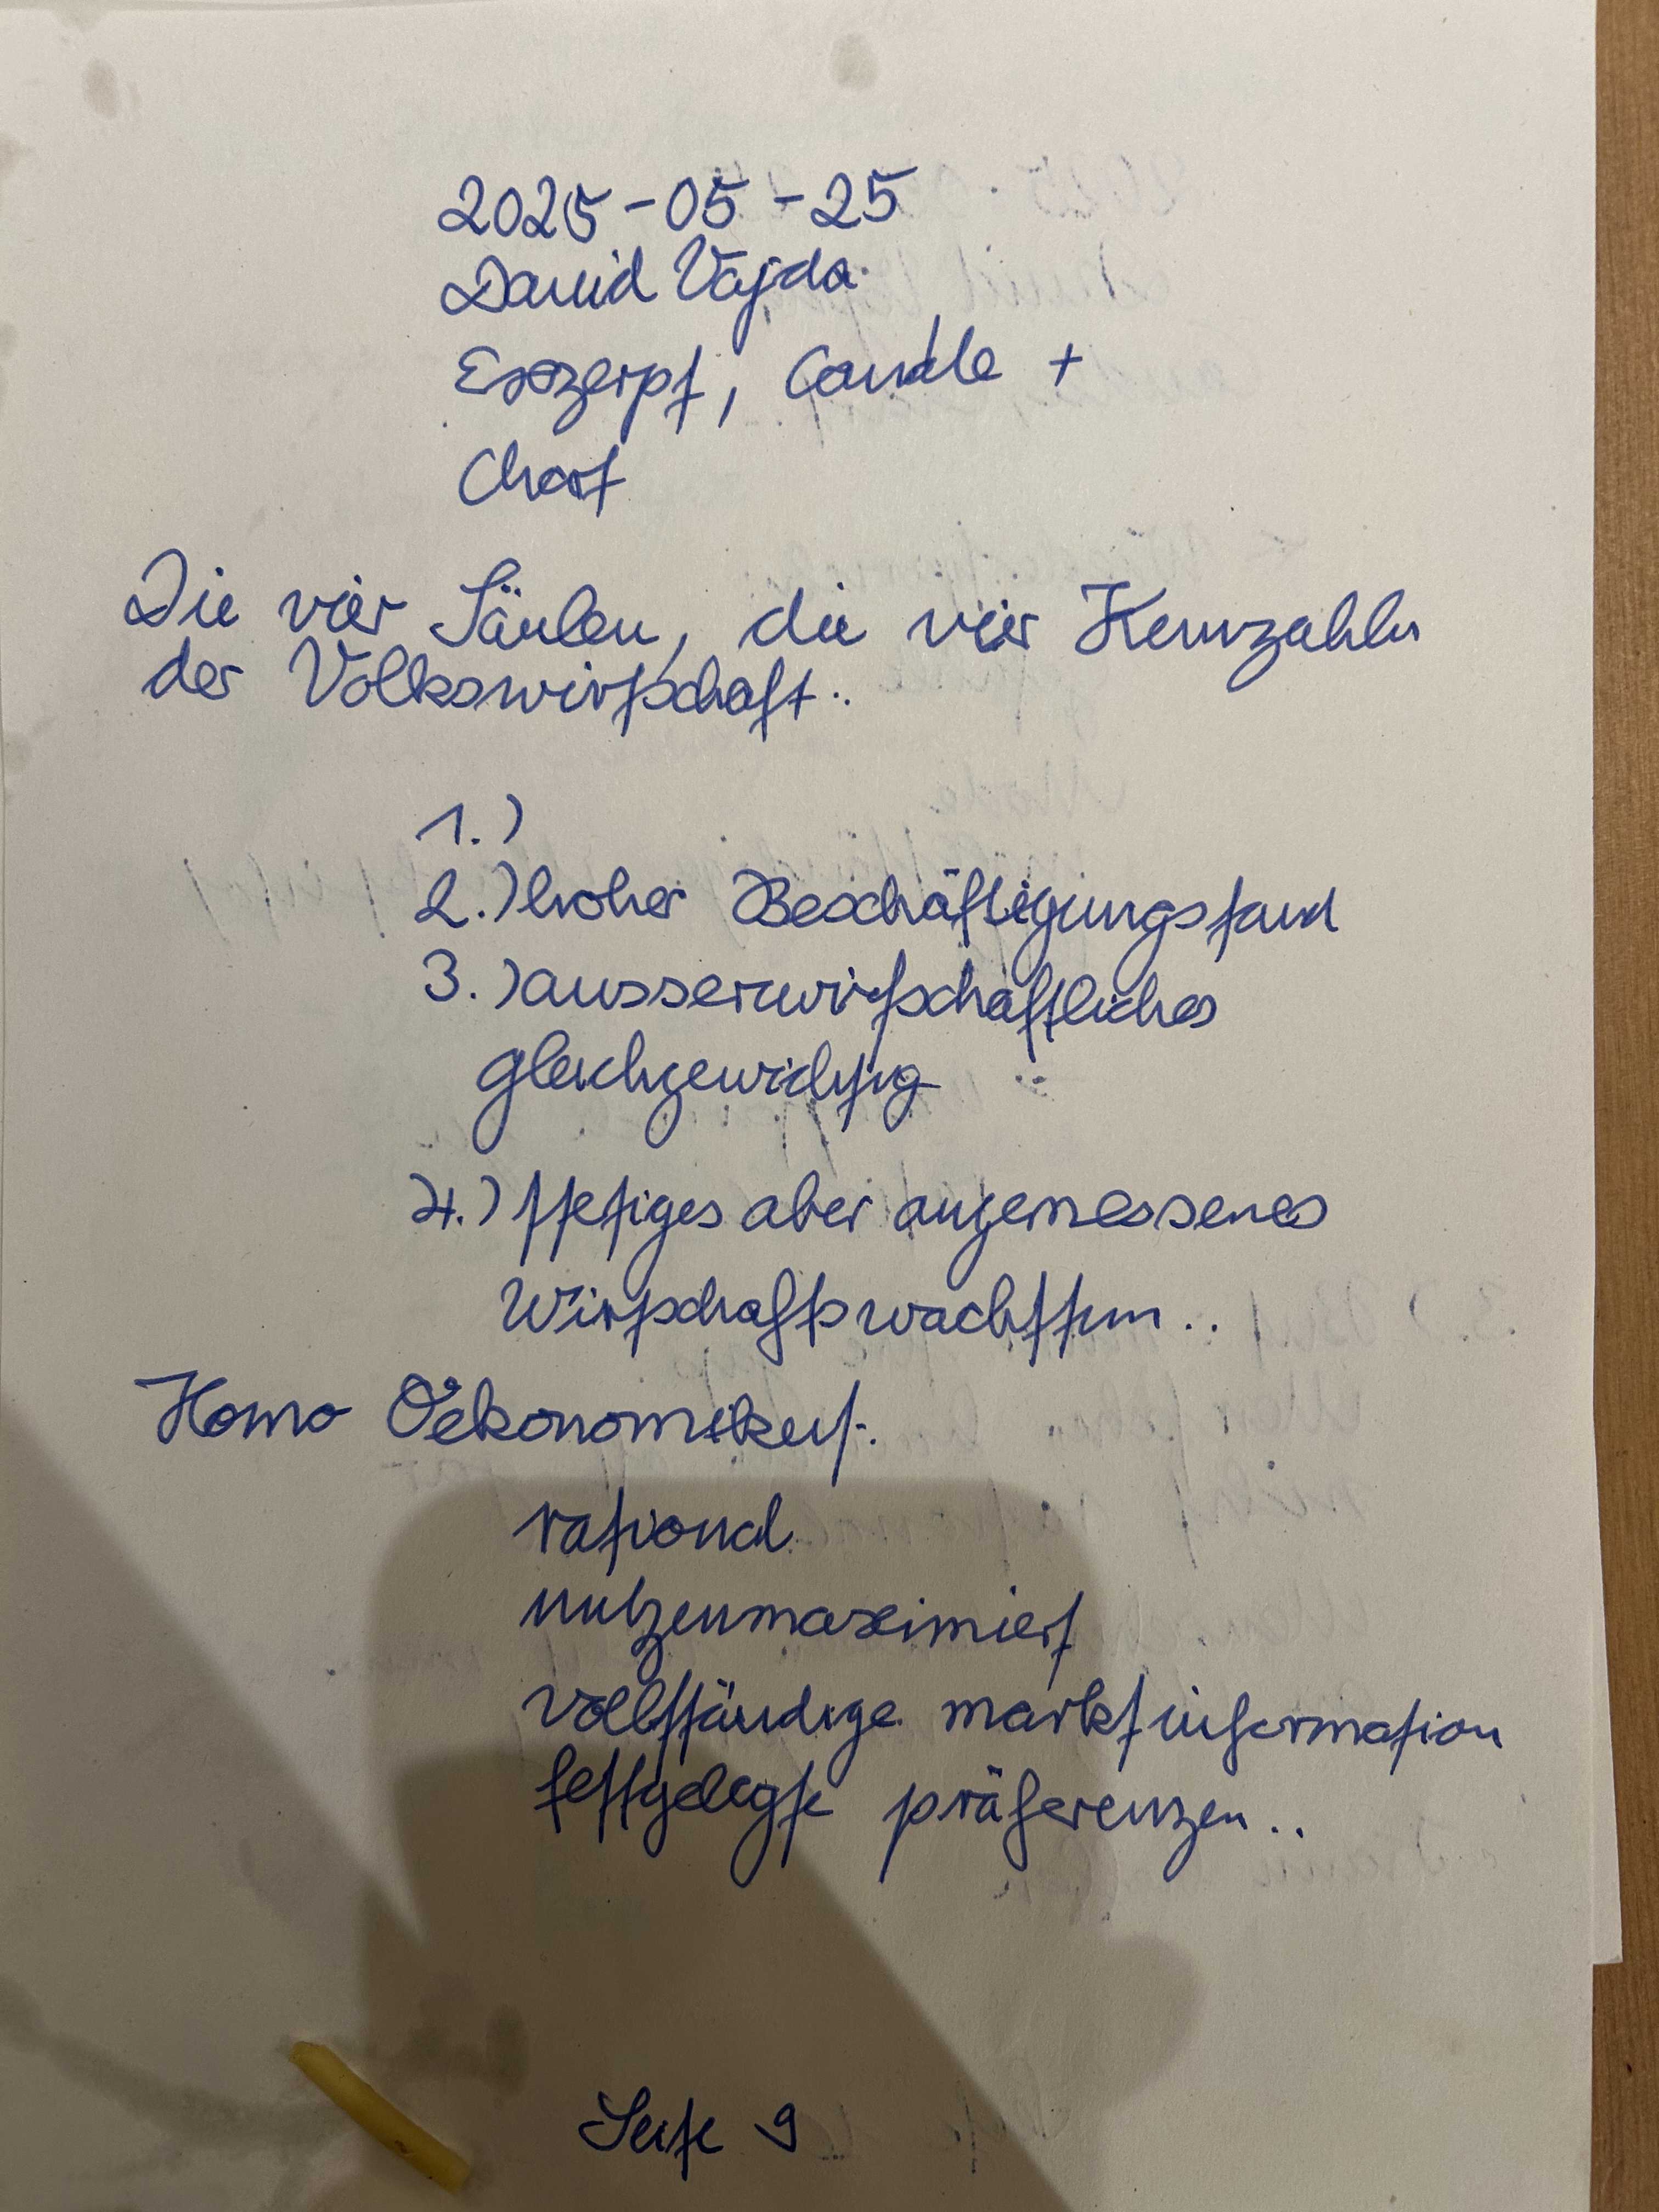 2025-05-25
David Vajda
Exzerpt, Candle +
Chart
Die vier Säulen, die vier Kennzahlen
der Volkswirtschaft..
1.)
2.) hoher Beschäftigungstand
3.) ausserwirtschaftliches
gleichgewichtig
4.) stetiges aber angemessenes
Wirtschaftswachstum..
Homo Oekonomikus.
rational
nutzenmaximiert
vollständige marktinformation
festgelegte präferenzen..
Seite 9